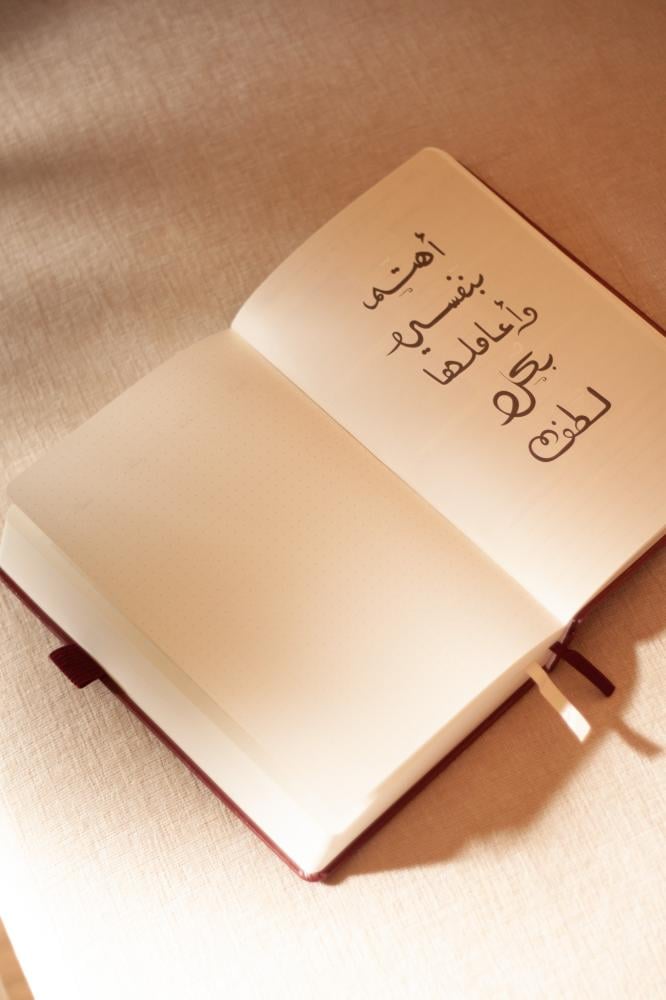 أهتم
بنفسي
وأعاملها
بكل
لطف